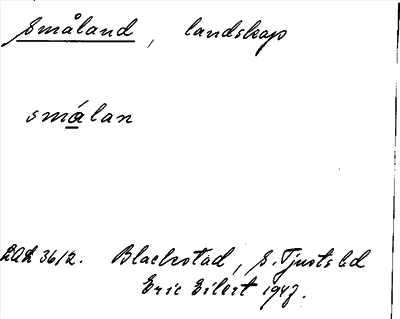 Småland, landskap
smálan
LAL 3612. Blackstad, S. Tjusts hd
Eric Eilert 1947.